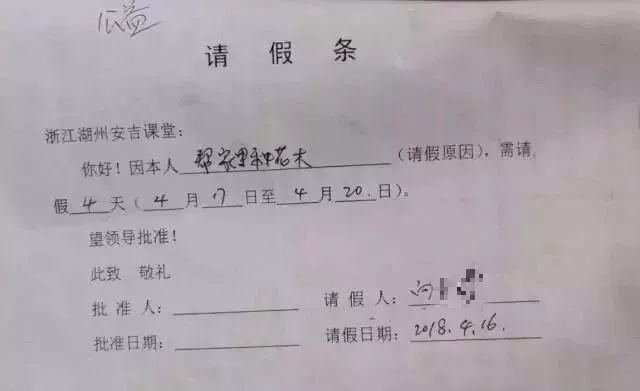 公益
请 假 条
浙江湖州安吉课堂：
你好！因本人 帮家里种苗木 （请假原因），需请
假 4 天（ 4 月 17 日至 4 月 20. 日）。
望领导批准！
此致 敬礼
批 准 人： 请 假 人： 向
批准日期： 请假日期： 2018.4.16.